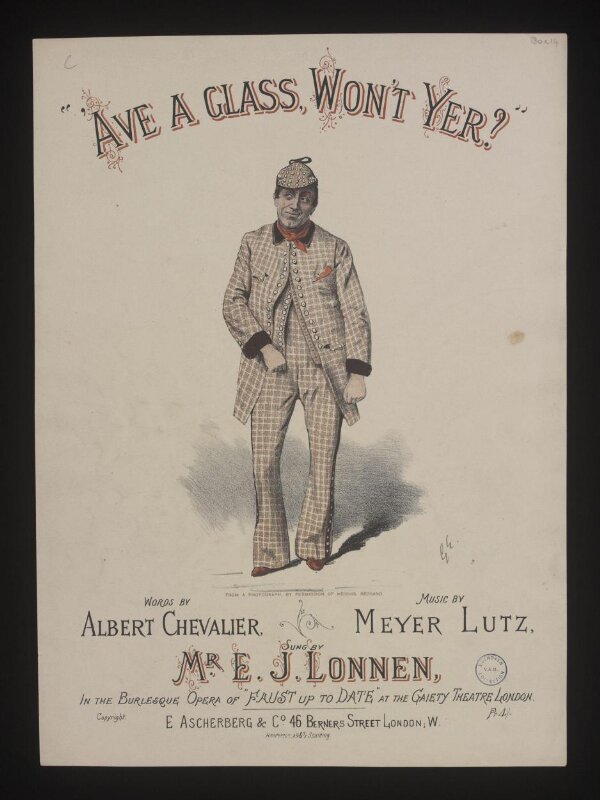 C
Box 14
"'AVE A GLASS, WON'T YER?"
FROM A PHOTOGRAPH, BY PERMISSION OF MESSRS. BERTAND
WORDS BY
ALBERT CHEVALIER,
MUSIC BY
MEYER LUTZ,
SUNG BY
MR E. J. LONNEN,
IN THE BURLESQUE OPERA OF "FAUST UP TO DATE," AT THE GAIETY THEATRE LONDON.
Copyright.
Pr. 4/-
E ASCHERBERG & Co 46 BERNERS STREET LONDON, W.